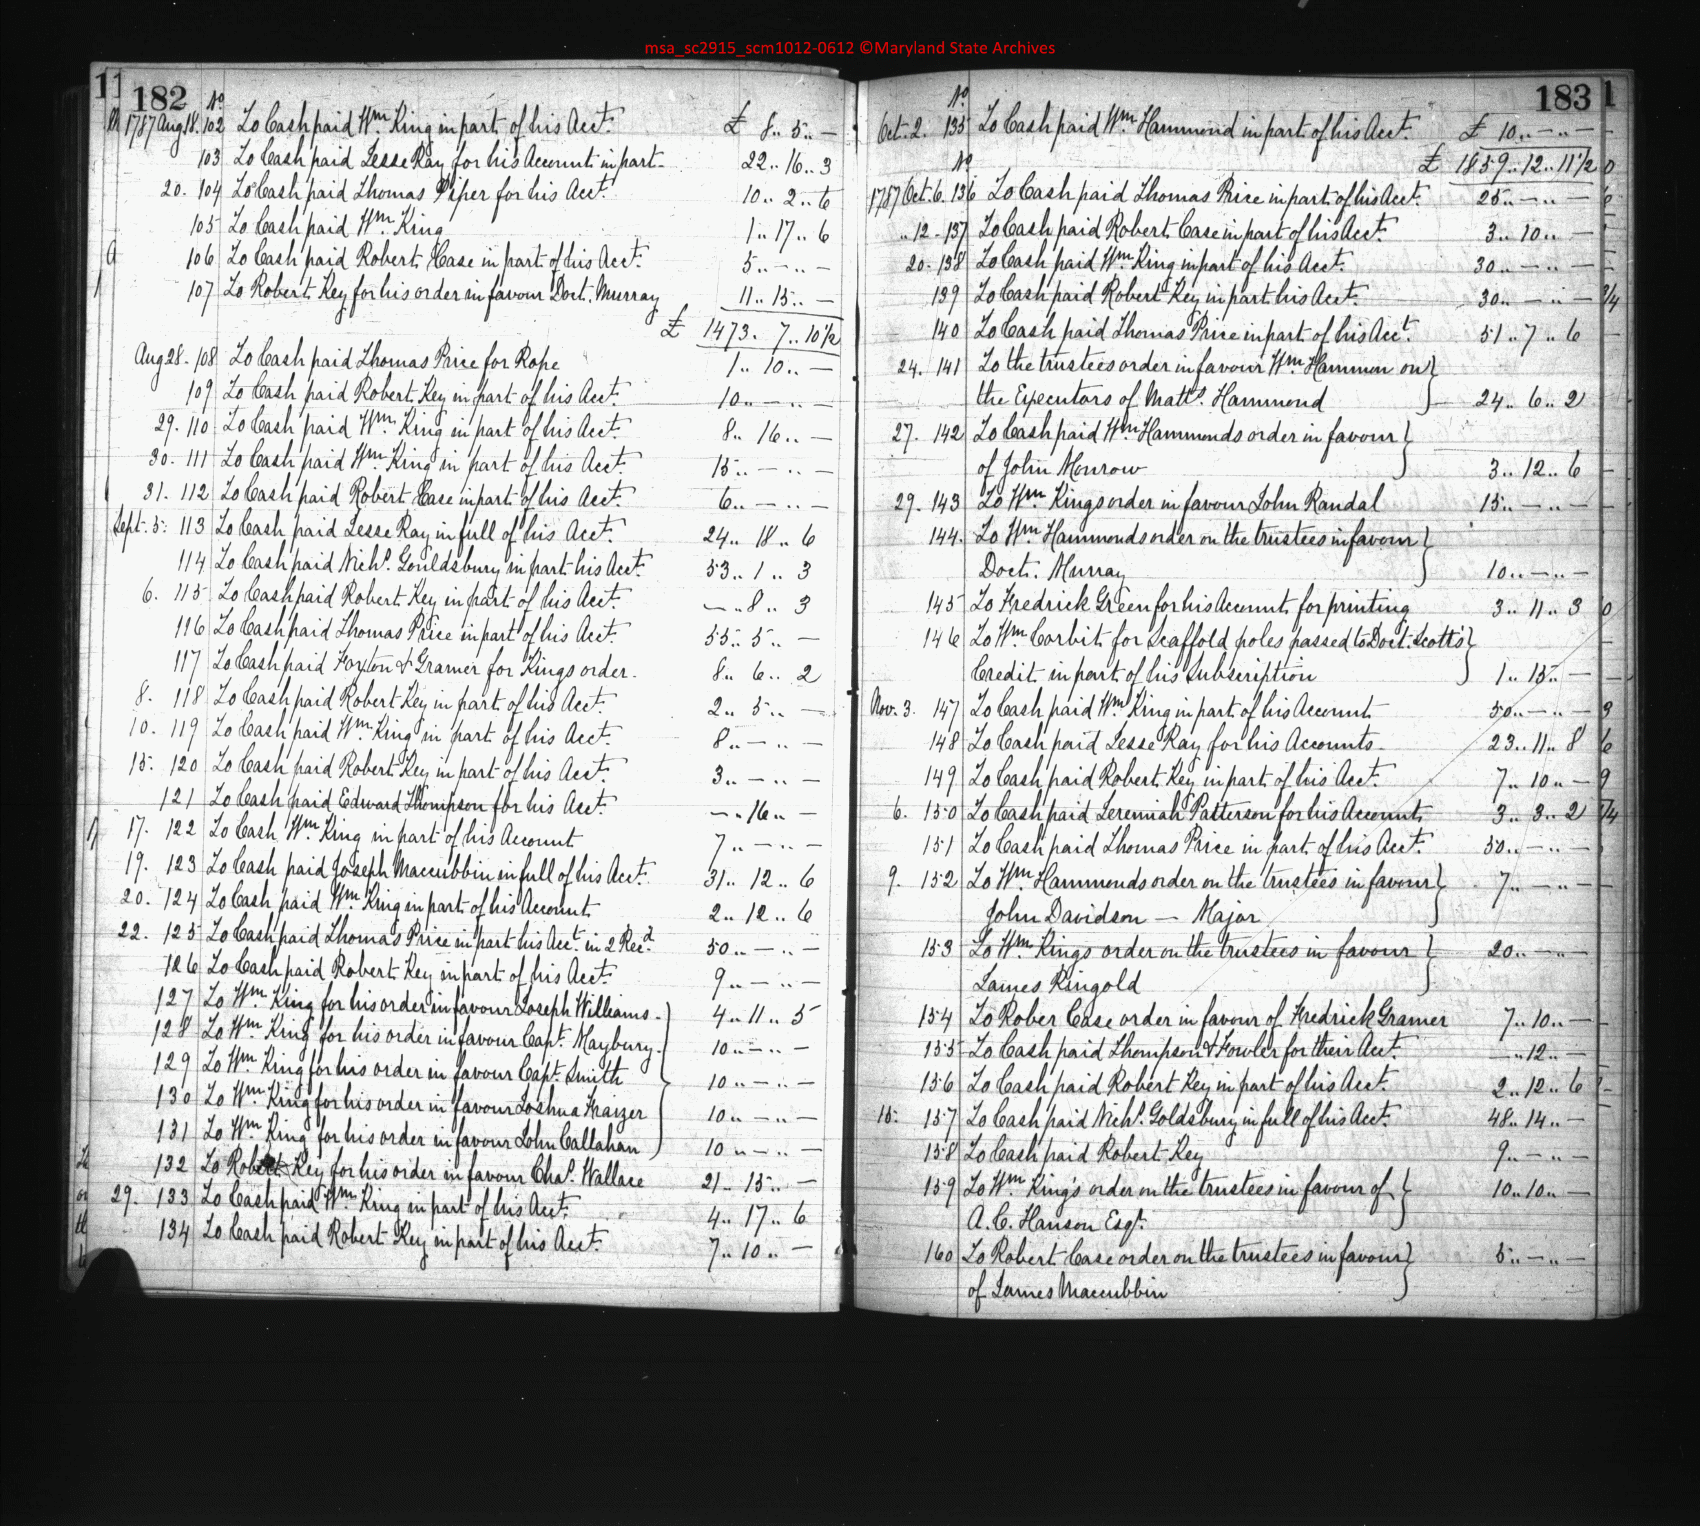 msa_sc2915_scm1012-0612 ©Maryland State Archives
11
182
No
1787 Aug 18. 102 To Cash paid Wm. King in part of his Acct. £ 8.. 5.. —
103 To Cash paid Jesse Ray for his Account in part 22.. 16.. 3
20. 104 To Cash paid Thomas Piper for his Acct. 10.. 2.. 6
105 To Cash paid Wm. King 1.. 17.. 6
106 To Cash paid Robert Case in part of his Acct. 5.. —.. —
107 To Robert Key for his order in favour Doct. Murray 11.. 15.. —
£ 1473. 7.. 10 1/2
Aug 28. 108 To Cash paid Thomas Price for Rope 1.. 10.. —
109 To Cash paid Robert Key in part of his Acct. 10.. —.. —
29. 110 To Cash paid Wm. King in part of his Acct. 8.. 16.. —
30. 111 To Cash paid Wm. King in part of his Acct. 15.. —.. —
31. 112 To Cash paid Robert Case in part of his Acct. 6.. —.. —
Sept. 5. 113 To Cash paid Jesse Ray in full of his Acct. 24.. 18.. 6
114 To Cash paid Nichs. Gouldsbury in part his Acct. 53.. 1.. 3
6. 115 To Cash paid Robert Key in part of his Acct. —.. 8.. 3
116 To Cash paid Thomas Price in part of his Acct. 55.. 5.. —
117 To Cash paid Foxton & Gramer for Kings order. 8.. 6.. 2
8. 118 To Cash paid Robert Key in part of his Acct. 2.. 5.. —
10. 119 To Cash paid Wm. King in part of his Acct. 8.. —.. —
15. 120 To Cash paid Robert Key in part of his Acct. 3.. —.. —
121 To Cash paid Edward Thompson for his Acct. —.. 16.. —
17. 122 To Cash Wm. King in part of his Account 7.. —.. —
19. 123 To Cash paid Joseph Maccubbin in full of his Acct. 31.. 12.. 6
20. 124 To Cash paid Wm. King in part of his Account 2.. 12.. 6
22. 125 To Cash paid Thomas Price in part his Acct. in 2 Recd. 50.. —.. —
126 To Cash paid Robert Key in part of his Acct. 9.. —.. —
127 To Wm. King for his order in favour Joseph Williams. 4.. 11.. 5
128 To Wm. King for his order in favour Capt. Maybury. 10.. —.. —
129 To Wm. King for his order in favour Capt. Smith 10.. —.. —
130 To Wm. King for his order in favour Joshua Fraizer 10.. —.. —
131 To Wm. King for his order in favour John Callahan 10.. —.. —
132 To Robert Key for his order in favour Chas. Wallace 21.. 15.. —
29. 133 To Cash paid Wm. King in part of his Acct. 4.. 17.. 6
134 To Cash paid Robert Key in part of his Acct. 7.. 10.. —
183
No
Oct. 2. 135 To Cash paid Wm. Hammond in part of his Acct. £ 10.. —.. —
£ 1859.. 12.. 11 1/2
No
1787 Oct. 6. 136 To Cash paid Thomas Price in part of his Acct. 25.. —.. —
.. 12. 137 To Cash paid Robert Case in part of his Acct. 3.. 10.. —
20. 138 To Cash paid Wm. King in part of his Acct. 30.. —.. —
139 To Cash paid Robert Key in part his Acct. 30.. —.. —
140 To Cash paid Thomas Price in part of his Acct. 51.. 7.. 6
24. 141 To the trustees order in favour Wm. Hammon on
the Executors of Matts. Hammond 24.. 6.. 2
27. 142 To Cash paid Wm. Hammonds order in favour
of John Monrow 3.. 12.. 6
29. 143 To Wm. Kings order in favour John Randal 15.. —.. —
144. To Wm. Hammonds order on the trustees in favour
Doct. Murray 10.. —.. —
145 To Fredrick Green for his Account for printing 3.. 11.. 3
146 To Wm. Corbit for Scaffold poles passed to Doct. Scotts
Credit in part of his Subscription 1.. 15.. —
Nov. 3. 147 To Cash paid Wm. King in part of his Account 50.. —.. —
148 To Cash paid Jesse Ray for his Accounts. 23.. 11.. 8
149 To Cash paid Robert Key in part of his Acct. 7.. 10.. —
6. 150 To Cash paid Jeremiah Patterson for his Account 3.. 3.. 2
151 To Cash paid Thomas Price in part of his Acct. 30.. —.. —
9. 152 To Wm. Hammonds order on the trustees in favour 7.. —.. —
John Davidson — Major
153 To Wm. Kings order on the trustees in favour 20.. —.. —
James Ringold
154 To Rober Case order in favour of Fredrick Gramer 7.. 10.. —
155 To Cash paid Thompson & Fowler for their Acct. —.. 12.. —
156 To Cash paid Robert Key in part of his Acct. 2.. 12.. 6
15. 157 To Cash paid Nichs. Goldsbury in full of his Acct. 48.. 14.. —
158 To Cash paid Robert Key 9.. —.. —
159 To Wm. King's order on the trustees in favour of 10.. 10.. —
A. C. Hanson Esqr.
160 To Robert Case order on the trustees in favour 5.. —.. —
of James Maccubbin